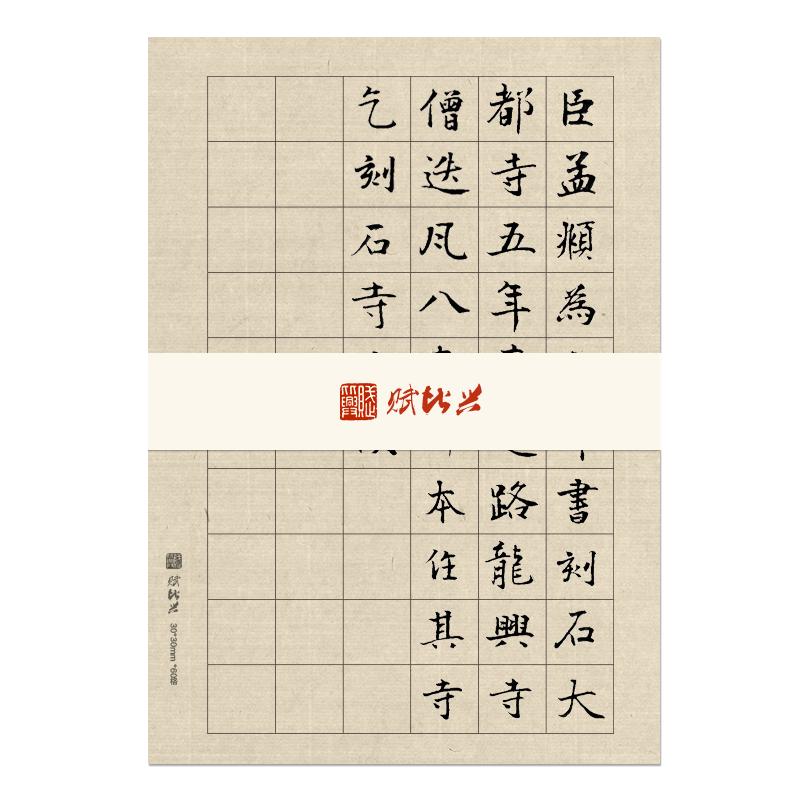 臣孟頫為
書刻石大
都寺五年
路龍興寺
僧迭凡八
本住其寺
乞刻石寺
赋比兴
赋比兴
30*30mm *60格